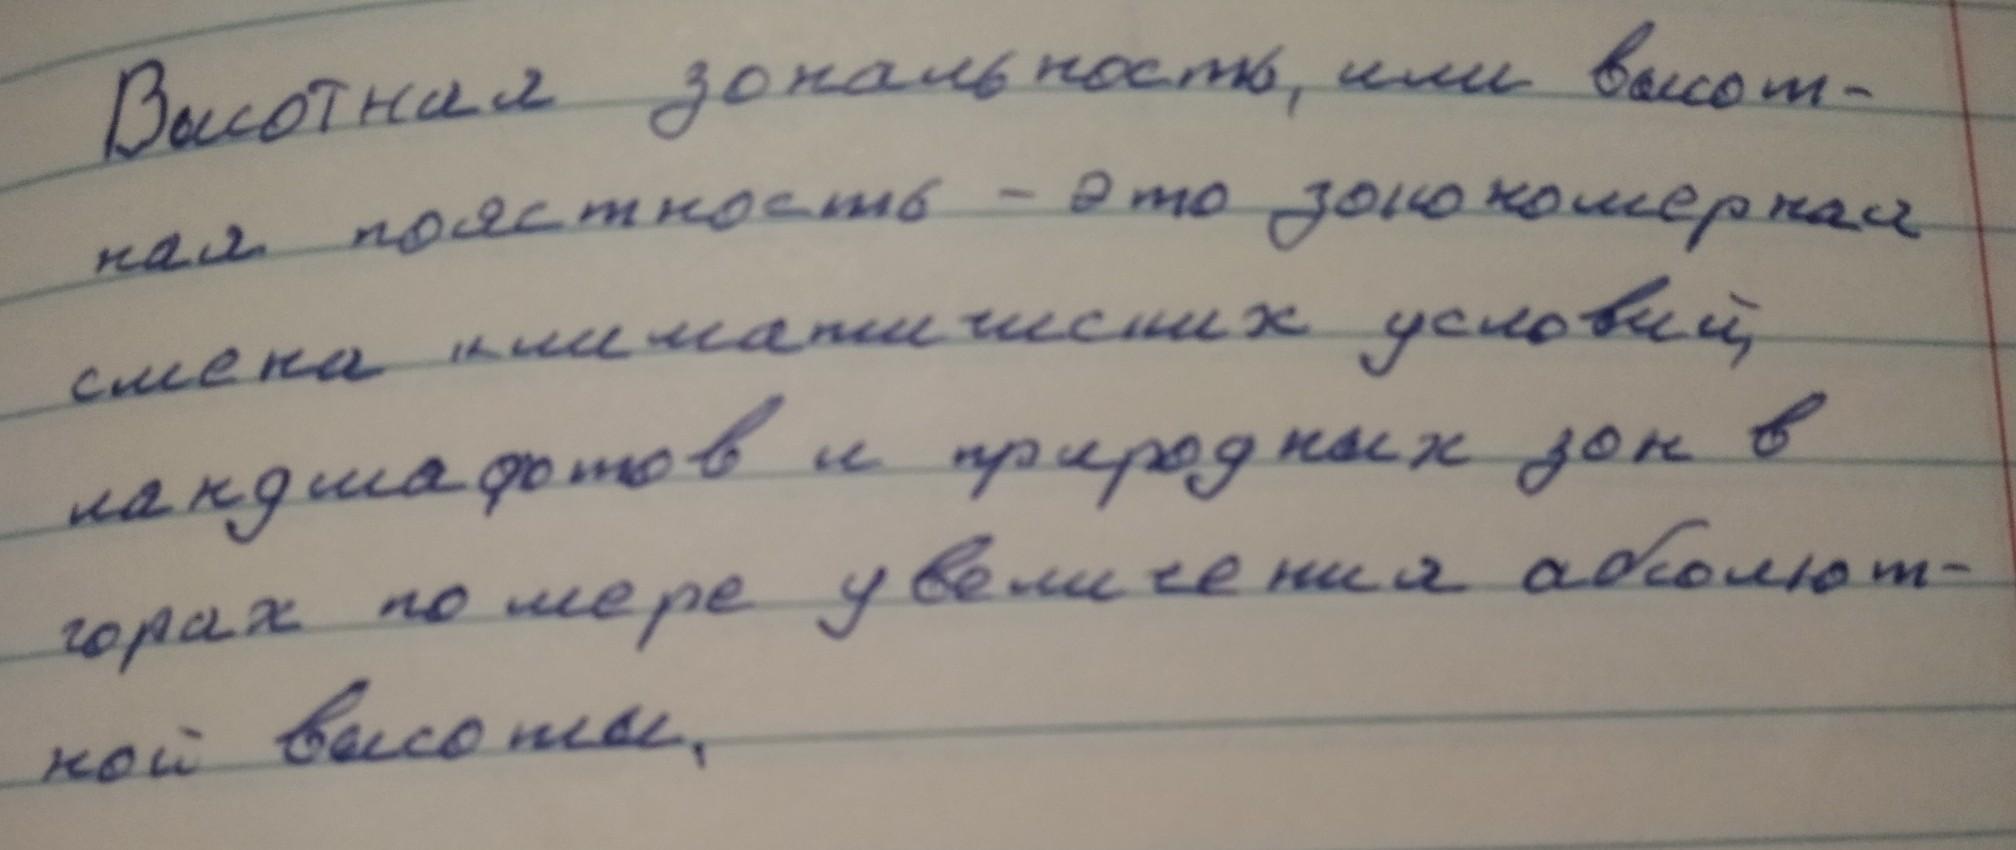 Высотная зональность, или высот-
ная поястность - это зокономерная
смена климатических условий,
ландшафтов и природных зон в
горах по мере увеличения абсолют-
ной высоты.